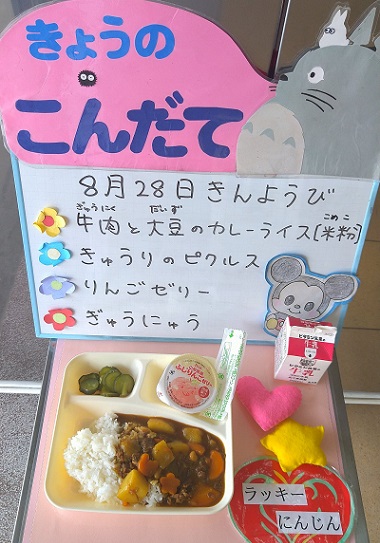 きょうの
こんだて
8月28日きんようび
ぎゅうにく だいず こめこ
牛肉と大豆のカレーライス[米粉]
きゅうりのピクルス
りんごゼリー
ぎゅうにゅう
ふじりんごゼリー
牛乳
ラッキー
にんじん